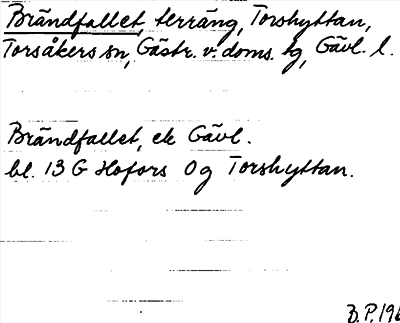 Brändfallet, terräng, Torshyttan,
Torsåkers sn, Gästr. v. doms. tg, Gävl. l.
Brändfallet, ek Gävl.
bl. 13 G Hofors 0 g Torshyttan.
B.P. 196